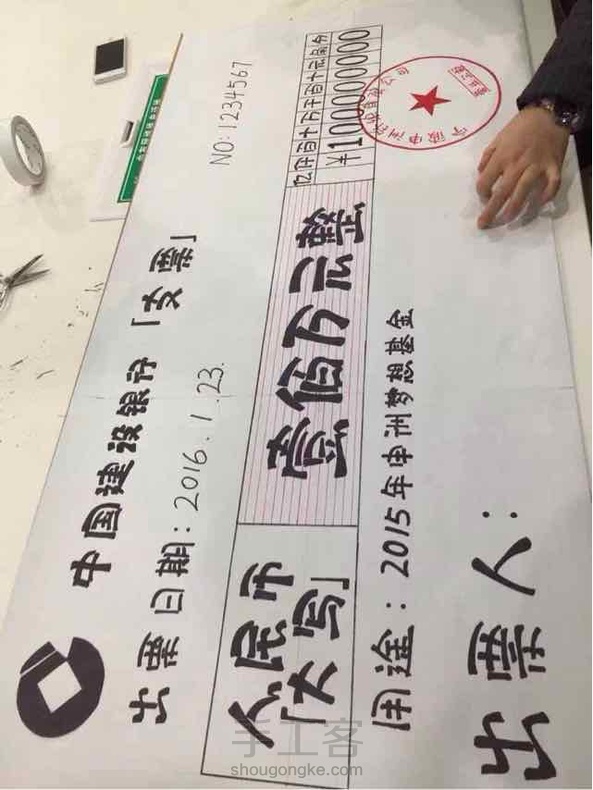 中国建设银行「支票」
NO:1234567
出票日期:2016.1.23.
亿仟百十万千百十元角分
人民币「大写」
壹佰万元整
¥1000000000
用途:2015年申洲梦想基金
出票人:
手工客
shougongke.com